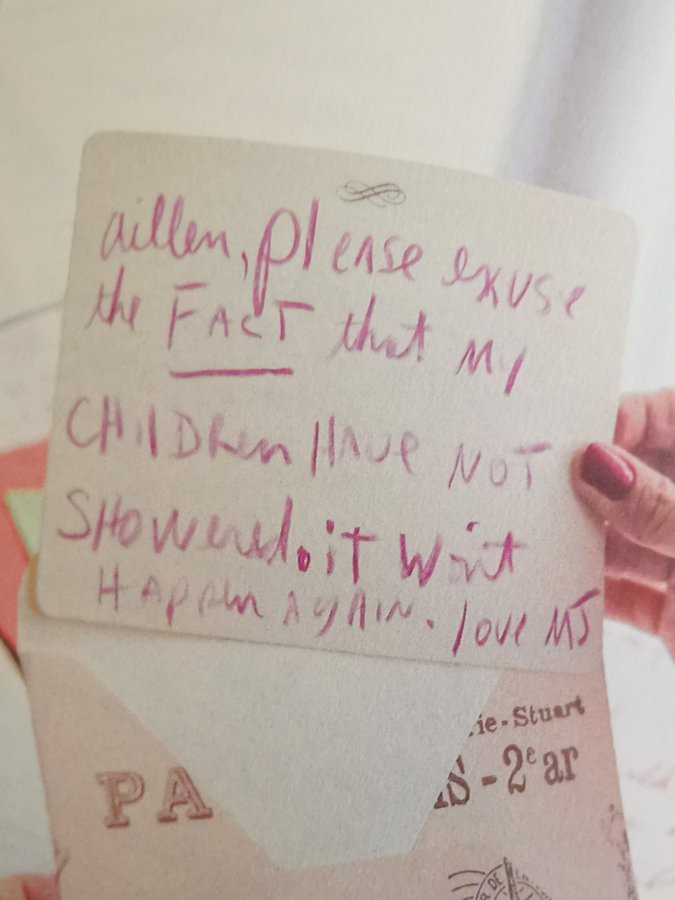 aillen, please exuse
the FACT that My
CHilDRen HAve NOT
SHOWered. iT Won't
HAppen AgAiN. love MJ
ie-Stuart
PA
IS - 2e ar